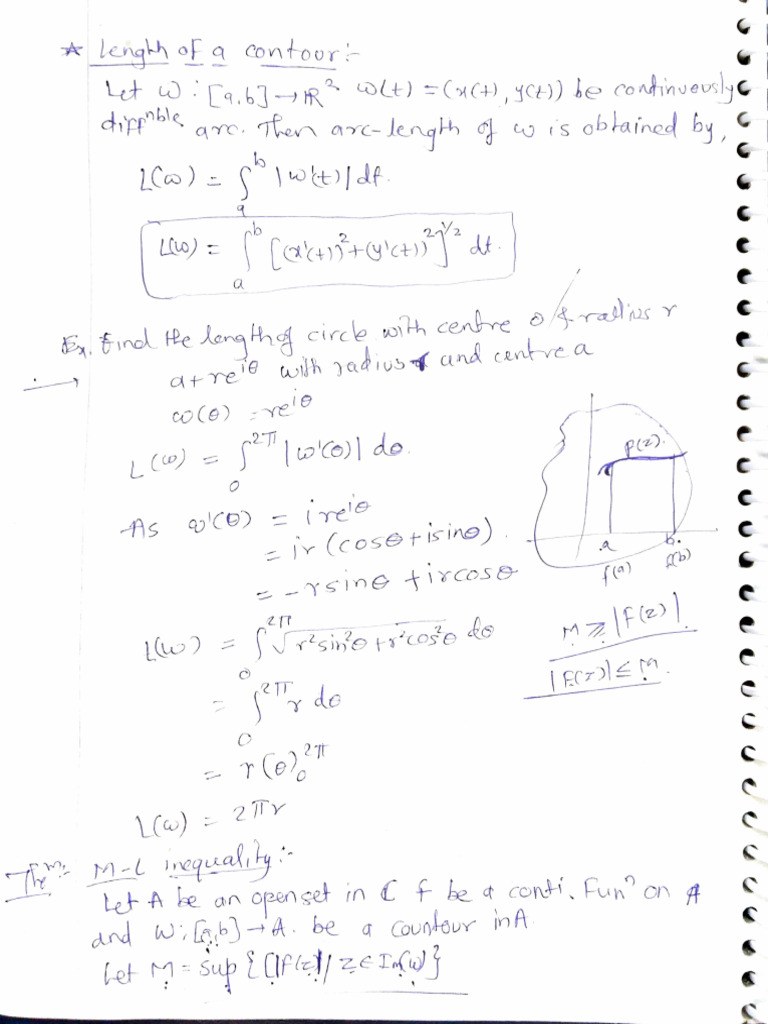 * Length of a contour:-
Let ω: [a,b] → ℝ² ω(t) = (x(t), y(t)) be continuously
diffnble arc. Then arc-length of ω is obtained by,
L(ω) = ∫_a^b |ω'(t)| dt.
L(ω) = ∫_a^b [(x'(t))² + (y'(t))²]^{1/2} dt.
Ex. Find the length of circle with centre 0 & radius r
→ a+re^{iθ} with radius r and centre a
ω(θ) = re^{iθ}
L(ω) = ∫_0^{2π} |ω'(θ)| dθ.
As ω'(θ) = ire^{iθ}
= ir(cosθ + isinθ).
= -rsinθ + ircosθ
L(ω) = ∫_0^{2π} √(r²sin²θ + r²cos²θ) dθ
= ∫_0^{2π} r dθ
= r(θ)_0^{2π}
L(ω) = 2πr
f(z).
a b.
f(a) f(b)
M ≥ |f(z)|.
|f(z)| ≤ M.
Thm:- M-L inequality:-
Let A be an open set in ℂ f be a conti. Funⁿ on A
and ω: [a,b] → A. be a countour in A.
Let M = sup {(|f(z)| / z ∈ Im(ω)}